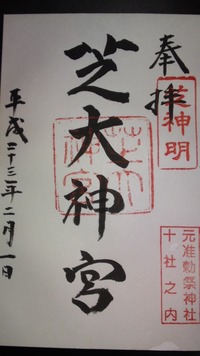 奉拝
芝神明
芝大神宮
芝大神宮
元准勅祭神社
十社之内
平成二十三年二月一日